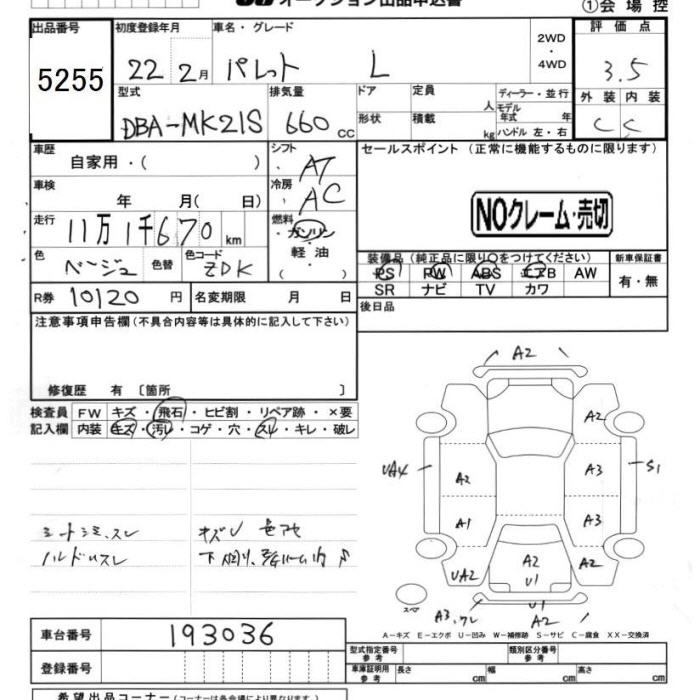 オークション出品申込書
①会場控
出品番号 初度登録年月 車名・グレード 評価点
5255 22年 2月 パレット L 2WD・4WD 3.5
型式 排気量 ドア 定員 人 ディーラー・並行 外装 内装
DBA-MK21S 660cc 形状 積載 kg モデル年式 年 ハンドル 左・右 C C
車歴 自家用・( ) シフト AT セールスポイント (正常に機能するものに限ります)
車検 年 月( 日) 冷房 AC
NOクレーム・売切
走行 11万1千670km 燃料 ガソリン・軽油・
色 ベージュ 色替 色コード ZDK
装備品 (純正品に限り○をつけてください) 新車保証書
PS PW ABS エアB AW 有・無
SR ナビ TV カワ
R券 10120円 名変期限 月 日 後日品
注意事項申告欄 (不具合内容等は具体的に記入して下さい)
修復歴 有 〔箇所 〕
検査員 FW キズ・飛石・ヒビ割・リペア跡・×要
記入欄 内装 キズ・汚レ・コゲ・穴・スレ・キレ・破レ
A2
A2
UA4 A2 A3 S1
A1 A3
UA2 A2 U1 A2
スペア A3.ワレ U1 A2
シートシミ、スレ
ハンドルスレ
A−キズ E−エクボ U−凹み W−補修跡 S−サビ C−腐食 XX−交換済
車台番号 193036
登録番号
型式指定番号 参考 類別区分番号 参考
車庫証明用 参考 長さ cm 幅 cm 高さ cm
希望出品コーナー (コーナーは各会場により異なります。)